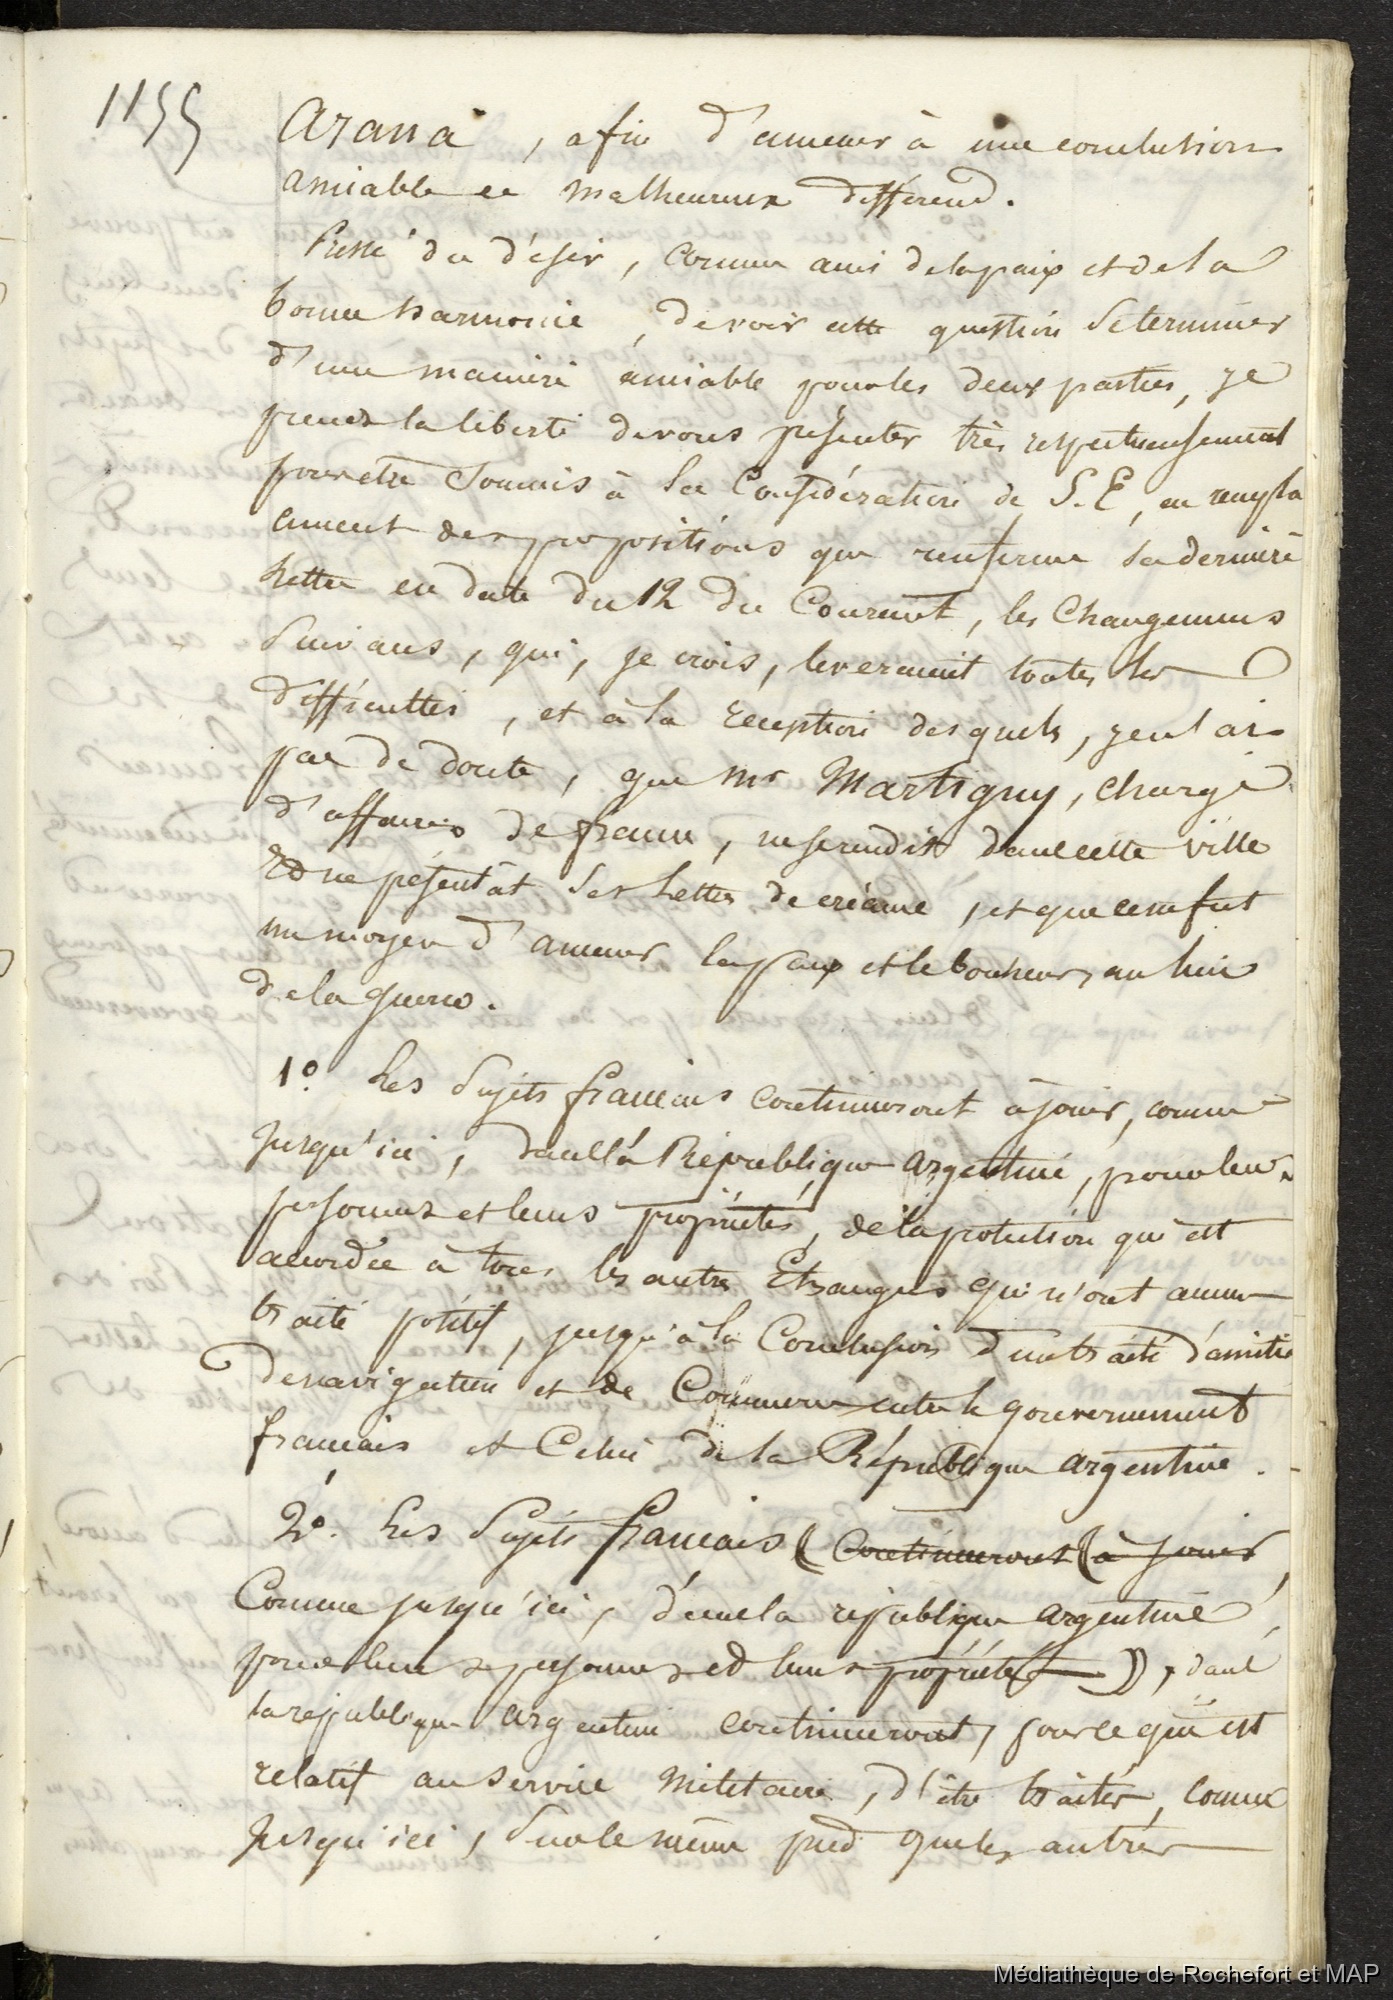 1155
Arana, afin d'amener à une conclusion
amiable ce malheureux différend.
Pressé du désir, comme ami de la paix et de la
bonne harmonie, de voir cette question se terminer
d'une manière amiable pour les deux parties, je
prends la liberté de vous présenter très respectueusement
pour être soumis à la Considération de S.E, en rempla
cement des propositions que renferme sa dernière
Lettre en date du 12 du Courant, les Changemens
Suivans, qui, je crois, leveraient toutes les
difficultés, et à la réception desquels, je n'ai
pas de doute, que Mr Martigny, chargé
d'affaires de france, ne se rendit dans cette ville
et ne présentât ses Lettres de créance, et que ce ne fut
un moyen d'amener la paix et le bonheur, au lieu
de la guerre.
1º. Les Sujets francais continueront à jouir, comme
jusqu'ici, dans la République argentine, pour leurs
personnes et leurs propriétés, de la protection qui est
accordée à tous les autres Etrangers qui n'ont aucun
traité positif, jusqu'à la Conclusion d'un traité d'amitié
de navigation et de Commerce entre le gouvernement
francais et Celui de la République argentine.
2º. Les Sujets francais (Continueront (à jouir,
Comme jusqu'ici, dans la république argentine,
pour leurs personnes et leurs propriétés)), dans
la république argentine continueront, pour ce qui est
relatif au service militaire, d'être traités, comme
jusqu'ici, sur le même pied que les autres
Médiathèque de Rochefort et MAP